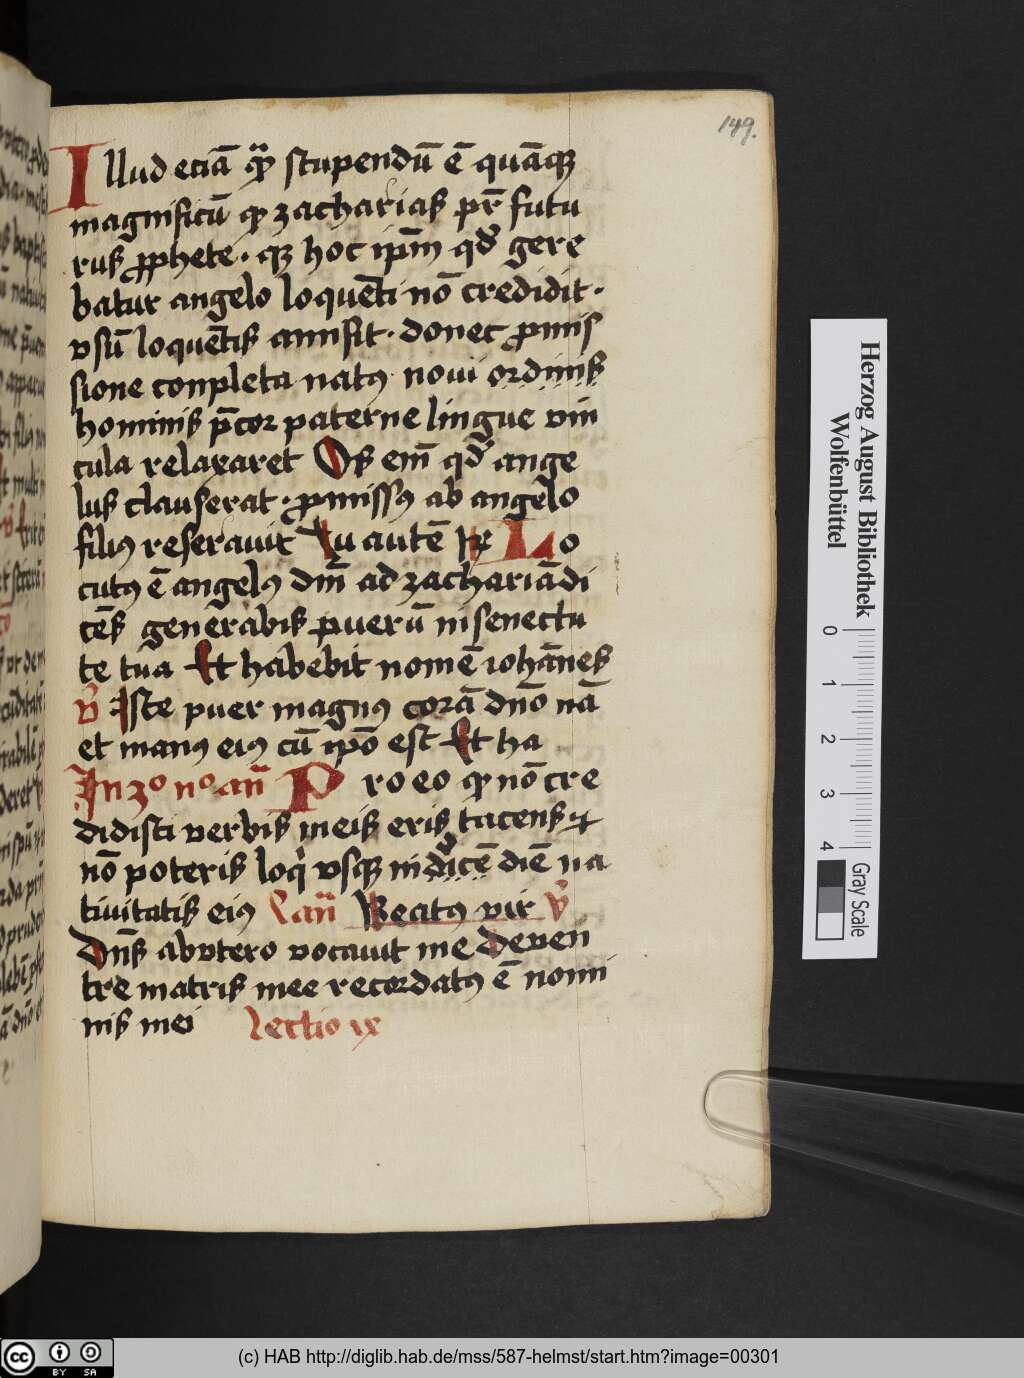 149.
Illud eciā qͣꝫ stupendū ē quāqꝫ
magnificū ꝙ zacharias pr̄ futu
rus ꝓphete · qꝫ hoc ip̄m qd̄ gere
batur angelo loquēti nō credidit ·
vsū loquētis amisit · donec ꝓmis
sione conpleta natꝰ noui ordinis
hominis p̄cor paterne lingue vin
cula relaxaret Os em̄ qd̄ ange
lus clauserat · ꝓmissꝰ ab angelo
filiꝰ reserauit Tu autē Rꝭ Lo
cutꝰ ē angelꝰ dn̄i ad zachariā di
cēs generabis puerū in senectu
te tua Et habebit nomē iohānes
v̄ Iste puer magnꝰ corā dn̄o nā
et manꝰ eiꝰ cū ip̄o est Et ha
In 2o no an̄ Pro eo ꝙ nō cre
didisti verbis meis eris tacens et
nō poteris loqi vsqꝫ in dicē diē na
tiuitatis eiꝰ Can̄ Beatꝰ vir v̄
Dn̄s ab vtero vocauit me De ven
tre matris mee recordatꝰ ē nomi
nis mei Lectio ix
Herzog August Bibliothek
Wolfenbüttel
0 1 2 3 4
Gray Scale
(c) HAB http://diglib.hab.de/mss/587-helmst/start.htm?image=00301
cc BY SA